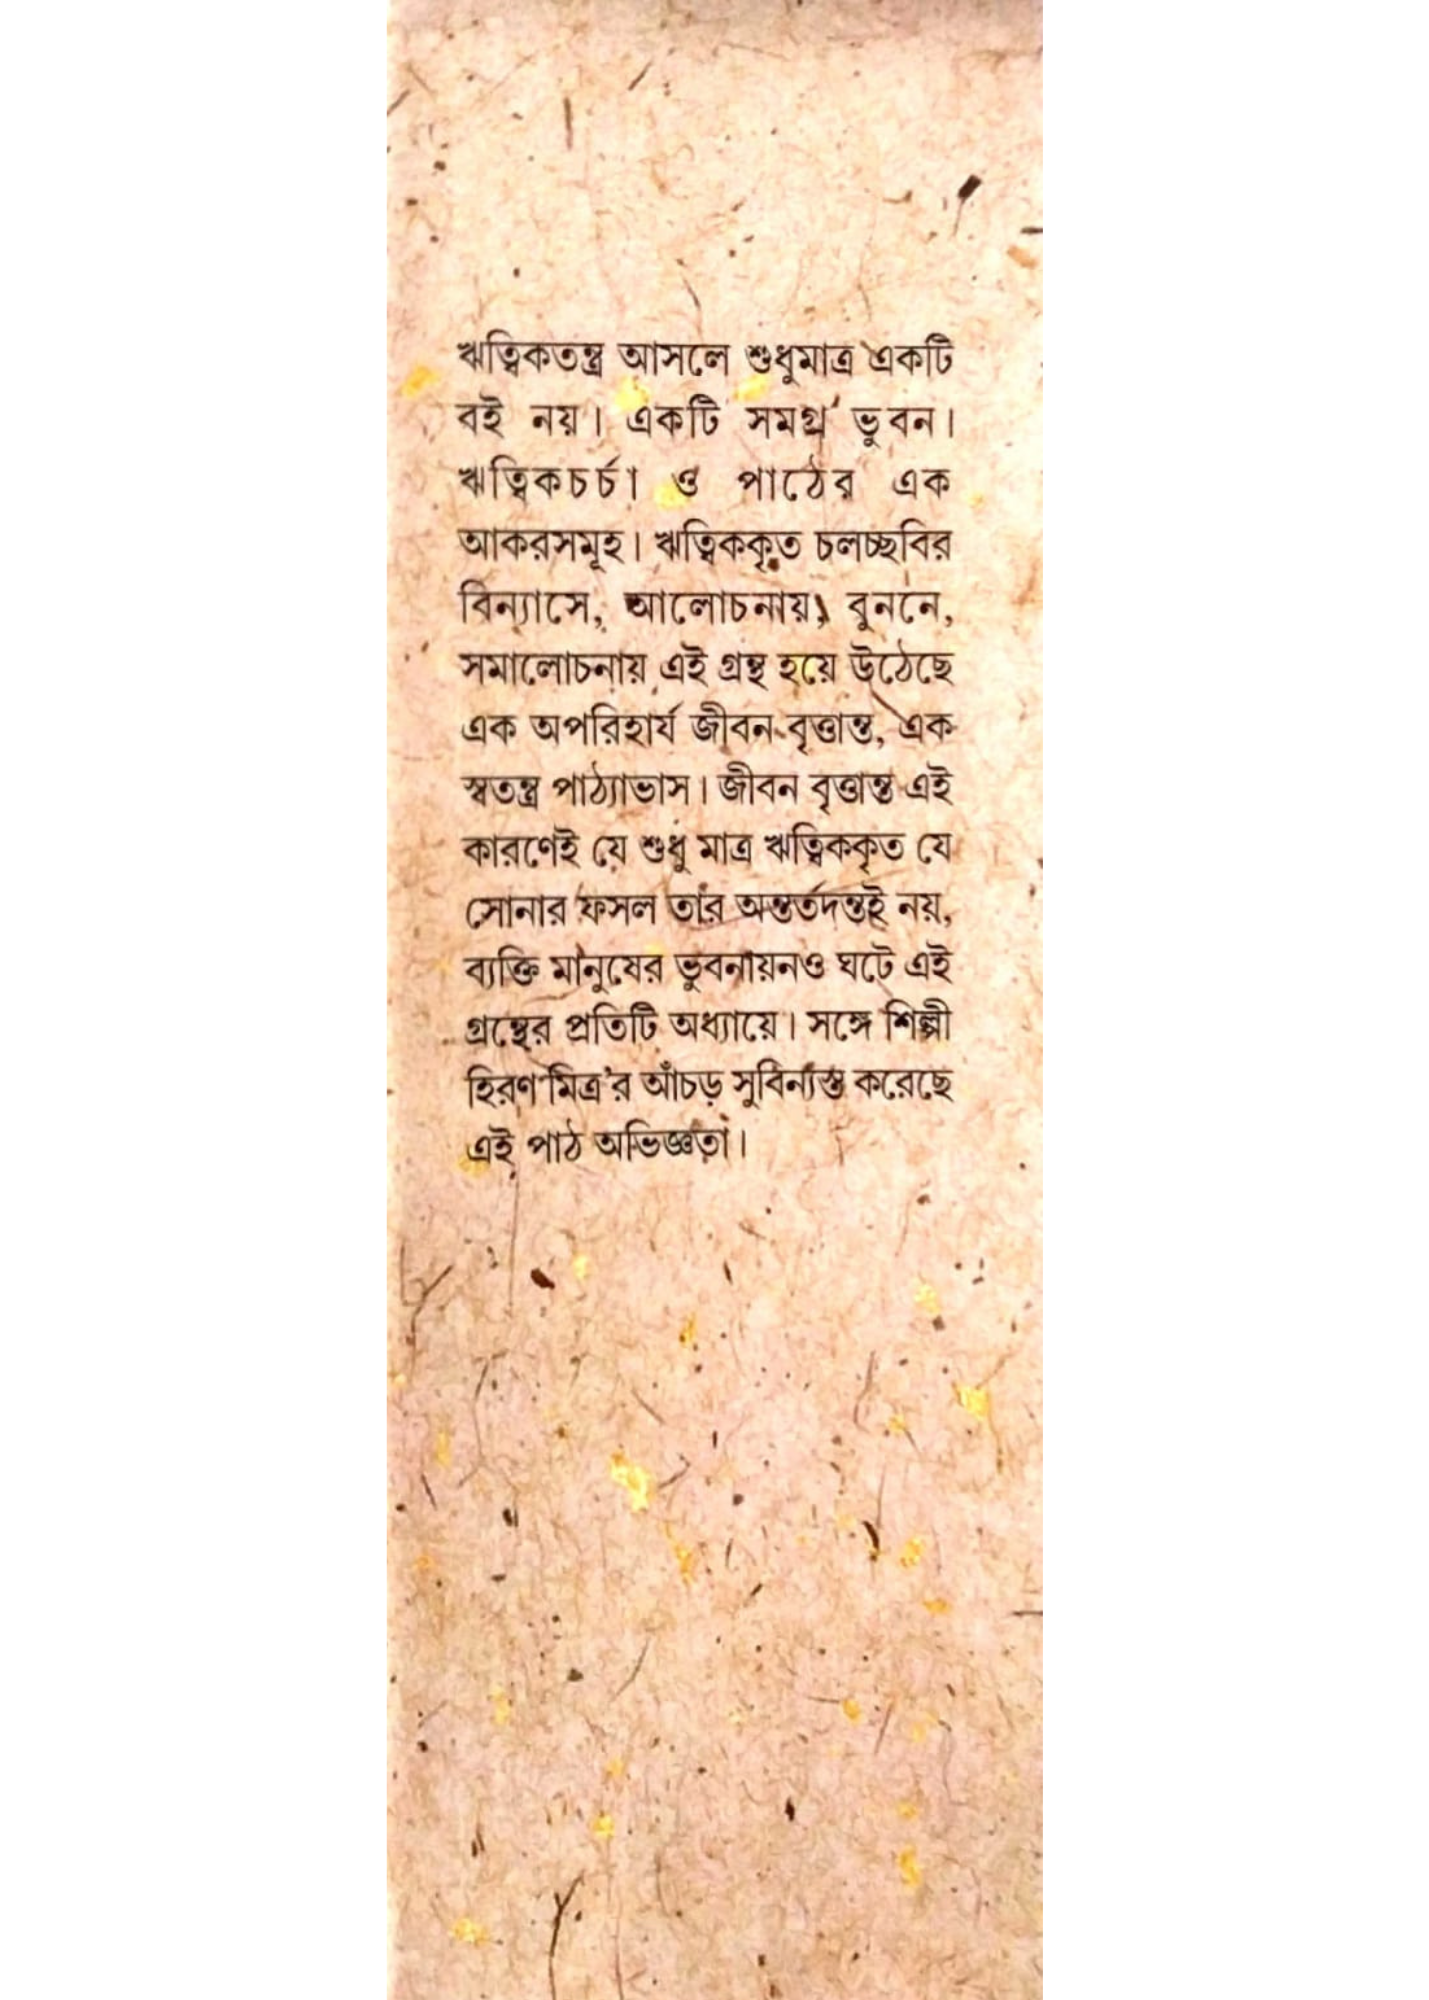 ঋত্বিকতন্ত্র আসলে শুধুমাত্র একটি
বই নয়। একটি সমগ্র ভুবন।
ঋত্বিকচর্চা ও পাঠের এক
আকরসমূহ। ঋত্বিককৃত চলচ্ছবির
বিন্যাসে, আলোচনায়, বুননে,
সমালোচনায় এই গ্রন্থ হয়ে উঠেছে
এক অপরিহার্য জীবন-বৃত্তান্ত, এক
স্বতন্ত্র পাঠ্যাভাস। জীবন বৃত্তান্ত এই
কারণেই যে শুধু মাত্র ঋত্বিককৃত যে
সোনার ফসল তার অন্তর্তদন্তই নয়,
ব্যক্তি মানুষের ভুবনায়নও ঘটে এই
গ্রন্থের প্রতিটি অধ্যায়ে। সঙ্গে শিল্পী
হিরণ মিত্র'র আঁচড় সুবিন্যস্ত করেছে
এই পাঠ অভিজ্ঞতা।